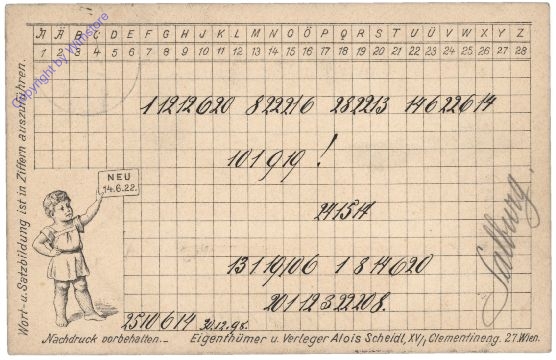 A Ä B C D E F G H J K L M N O Ö P Q R S T U Ü V W X Y Z
1 2 3 4 5 6 7 8 9 10 11 12 13 14 15 16 17 18 19 20 21 22 23 24 25 26 27 28
Copyright by Wilnstore
Wort- u. Satzbildung ist in Ziffern auszuführen.
1 12 12 6 20 8 22 21 6 28 22 13 14 6 22 6 14
10 1 9 19 !
NEU
14.6.22.
24 15 14
13 1 19 10 6 1 8 14 6 20
20 1 12 3 22 20 8.
Salburg.
25 10 6 14 30.12.98.
Nachdruck vorbehalten.— Eigenthümer u. Verleger Alois Scheidl, XV/1, Clementineng. 27. Wien.